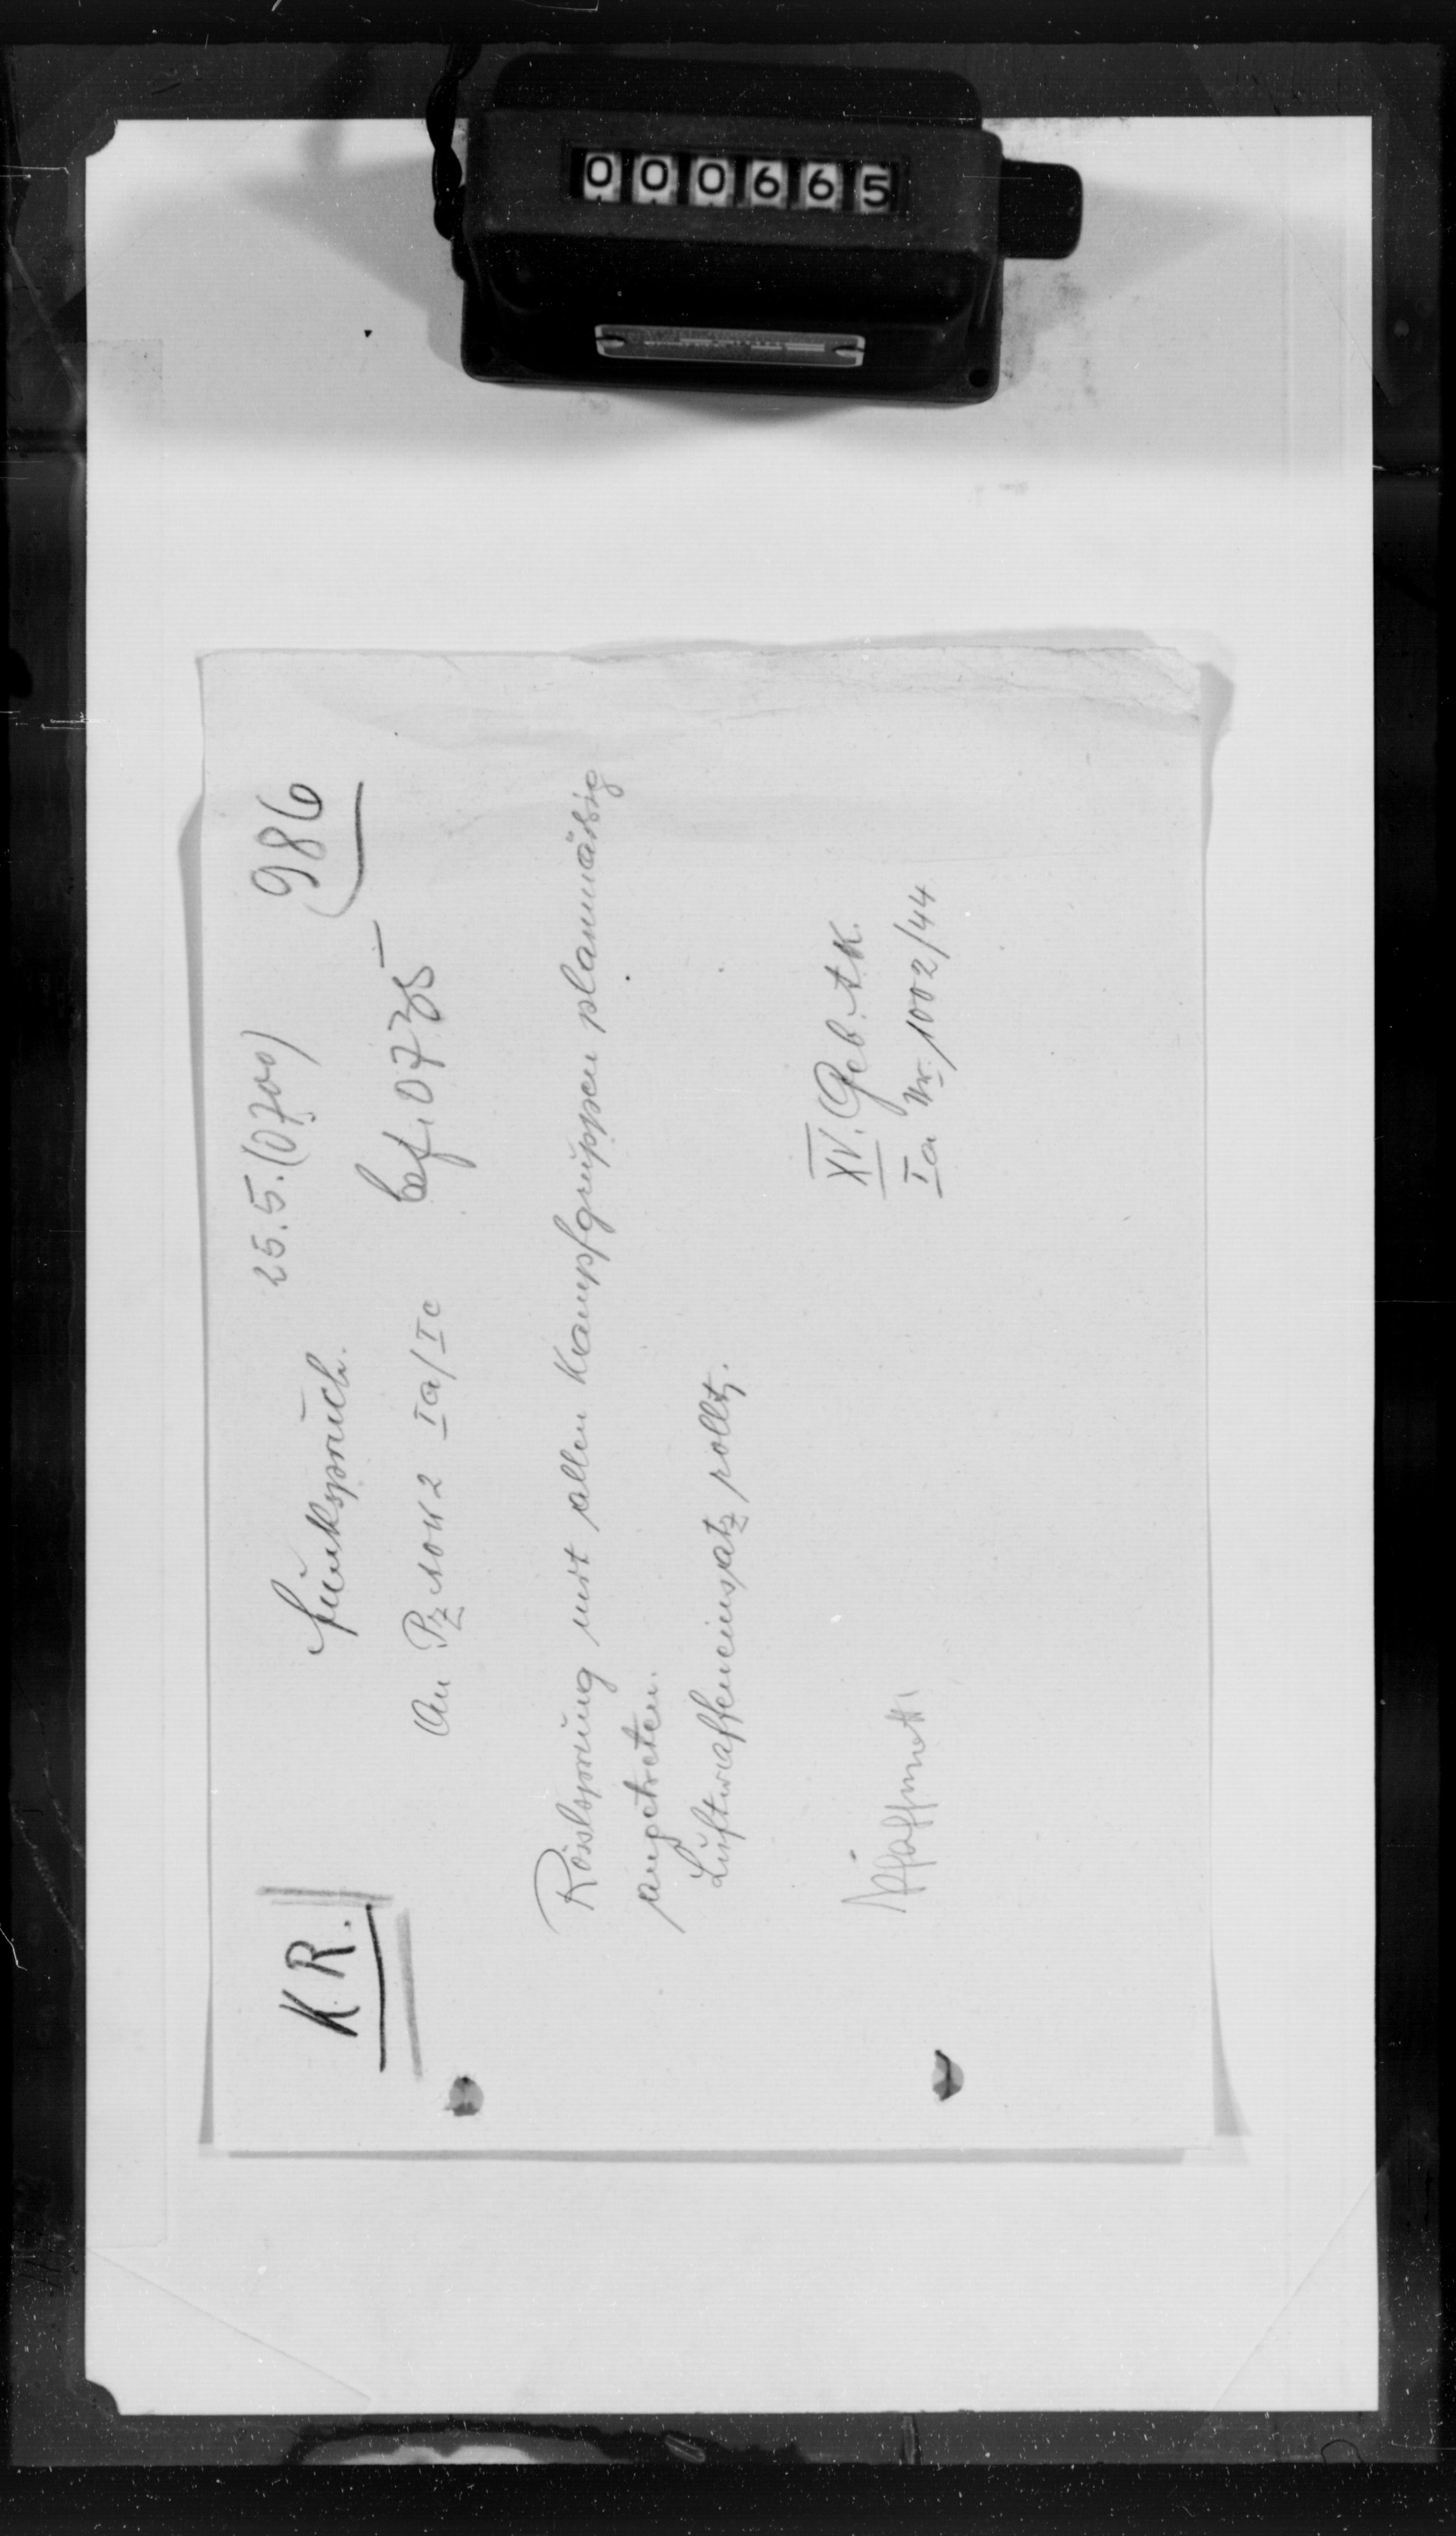 000665
K.R.
Funkspruch. 25.5. (0700) 986
An Pz AOK 2 Ia/Ic bef. 0735
Rösslsprung mit allen Kampfgruppen planmäßig
angetreten.
Luftwaffeneinsatz rollt.
XV. Geb. A.K.
Ia Nr. 1002/44